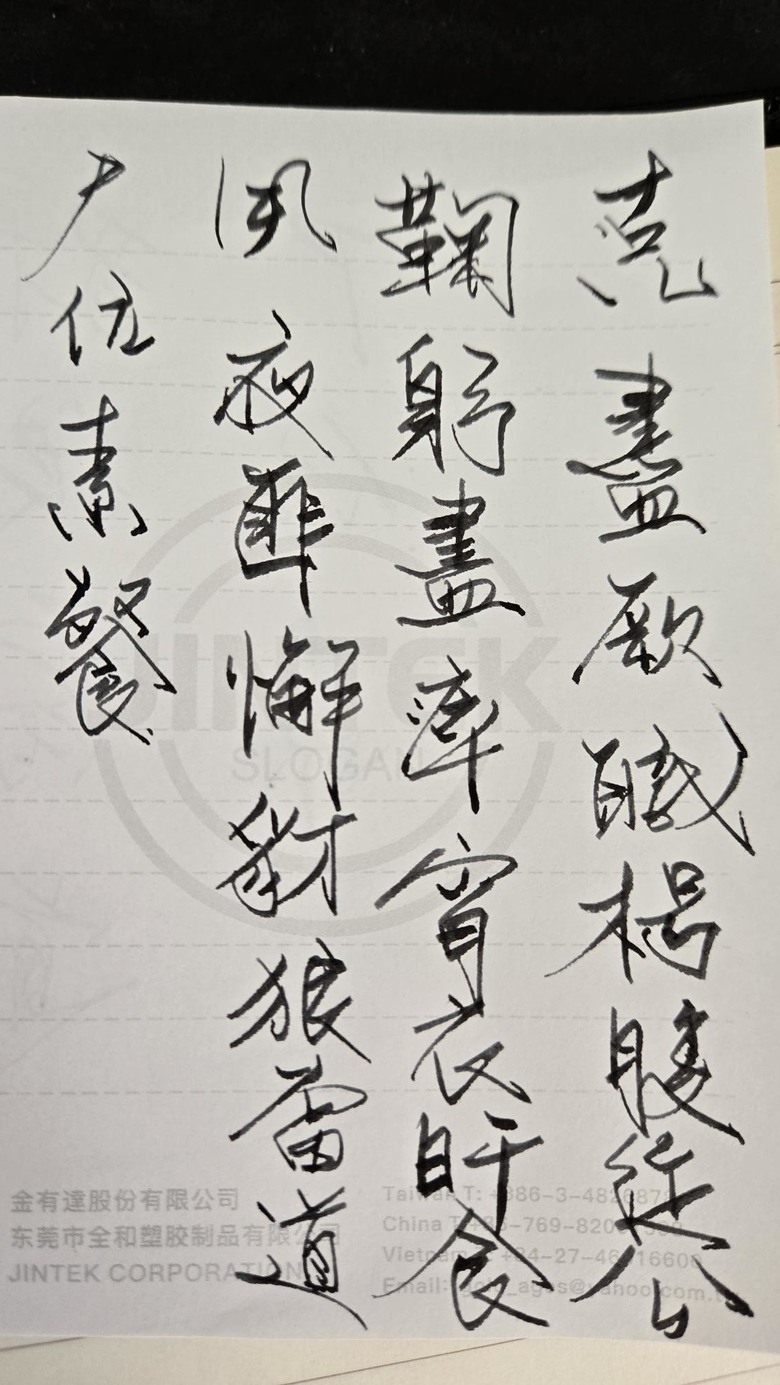 克盡厥職枵腹從公
鞠躬盡瘁宵衣旰食
夙夜匪懈豺狼當道
尸位素餐
JINTEK
SLOGAN
金有達股份有限公司
东莞市全和塑胶制品有限公司
JINTEK CORPORATION
Taiwan T: +886-3-482687
China T: +86-769-820
Vietnam +84-27-46 16600
Email: @yahoo.com.t